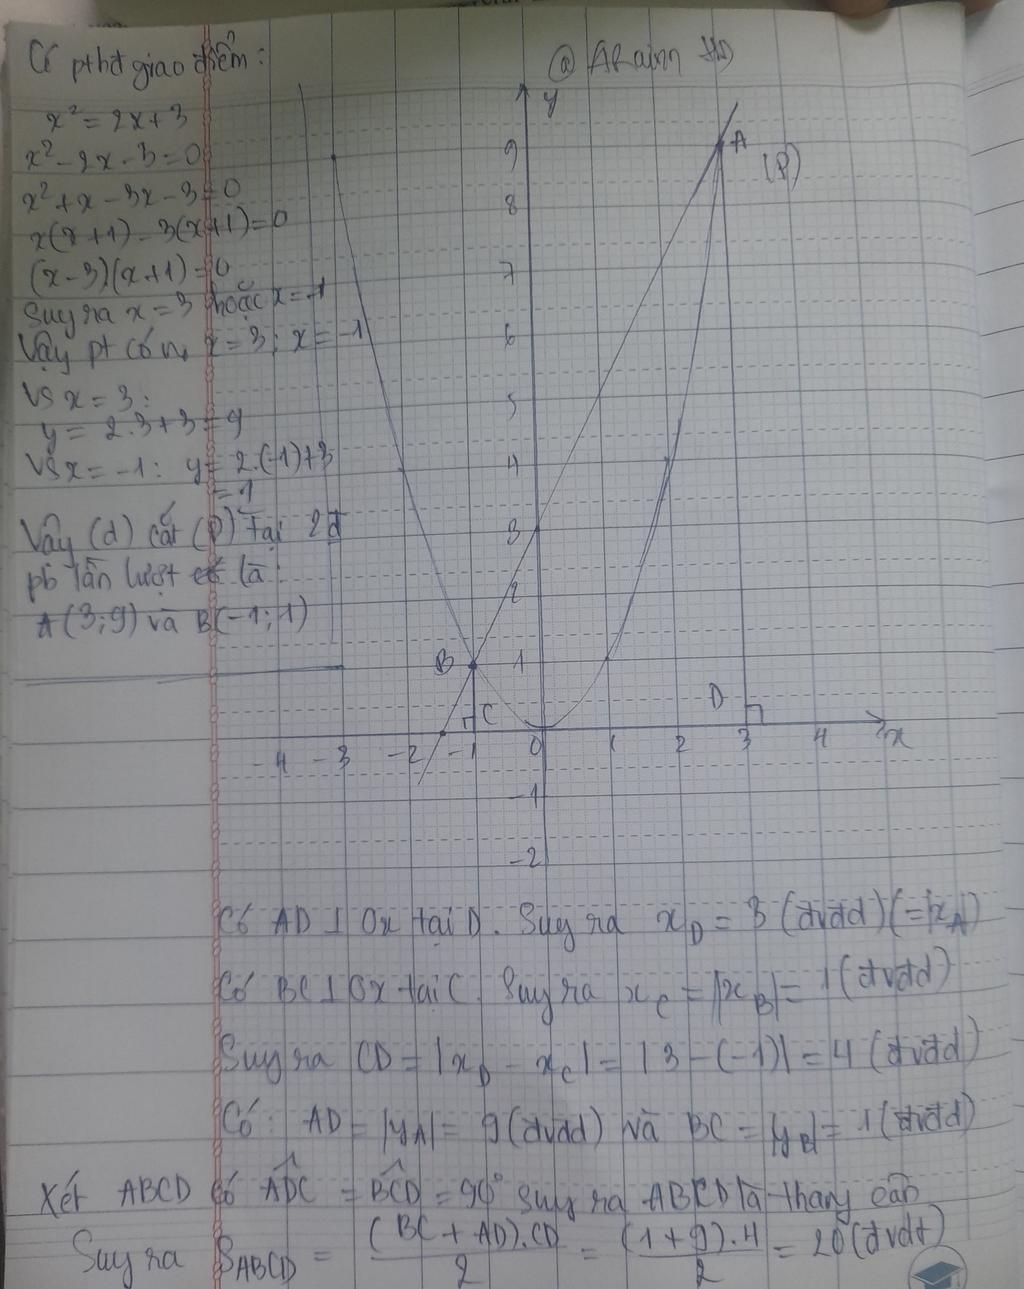 Có pthđ giao điểm:
@ ARainn HD
x² = 2x + 3
x² - 2x - 3 = 0
x² + x - 3x - 3 = 0
x(x + 1) - 3(x + 1) = 0
(x - 3)(x + 1) = 0
Suy ra x = 3 hoặc x = -1
Vậy pt có n₀ x = 3; x = -1
Vs x = 3:
y = 2.3 + 3 = 9
Vs x = -1: y = 2.(-1) + 3
= 1
Vậy (d) cắt (P) tại 2đ
pb lần lượt là
A(3;9) và B(-1;1)
y
9
A
(P)
8
7
6
5
4
3
2
B 1
C D
-4 -3 -2 -1 0 1 2 3 4 x
-1
-2
Có AD ⊥ Ox tại D. Suy ra x_D = 3 (đvđd) (= |x_A|)
Có BC ⊥ Ox tại C. Suy ra x_C = |x_B| = 1 (đvđd)
Suy ra CD = |x_D - x_C| = |3 - (-1)| = 4 (đvđd)
Có: AD = |y_A| = 9 (đvđd) và BC = |y_B| = 1 (đvđd)
Xét ABCD có ADC = BCD = 90° suy ra ABCD là thang cân
Suy ra S_ABCD = (BC + AD).CD / 2 = (1 + 9).4 / 2 = 20 (đvdt)